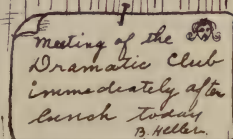 Meeting of the
Dramatic Club
immediately after
lunch today
B. Heller.